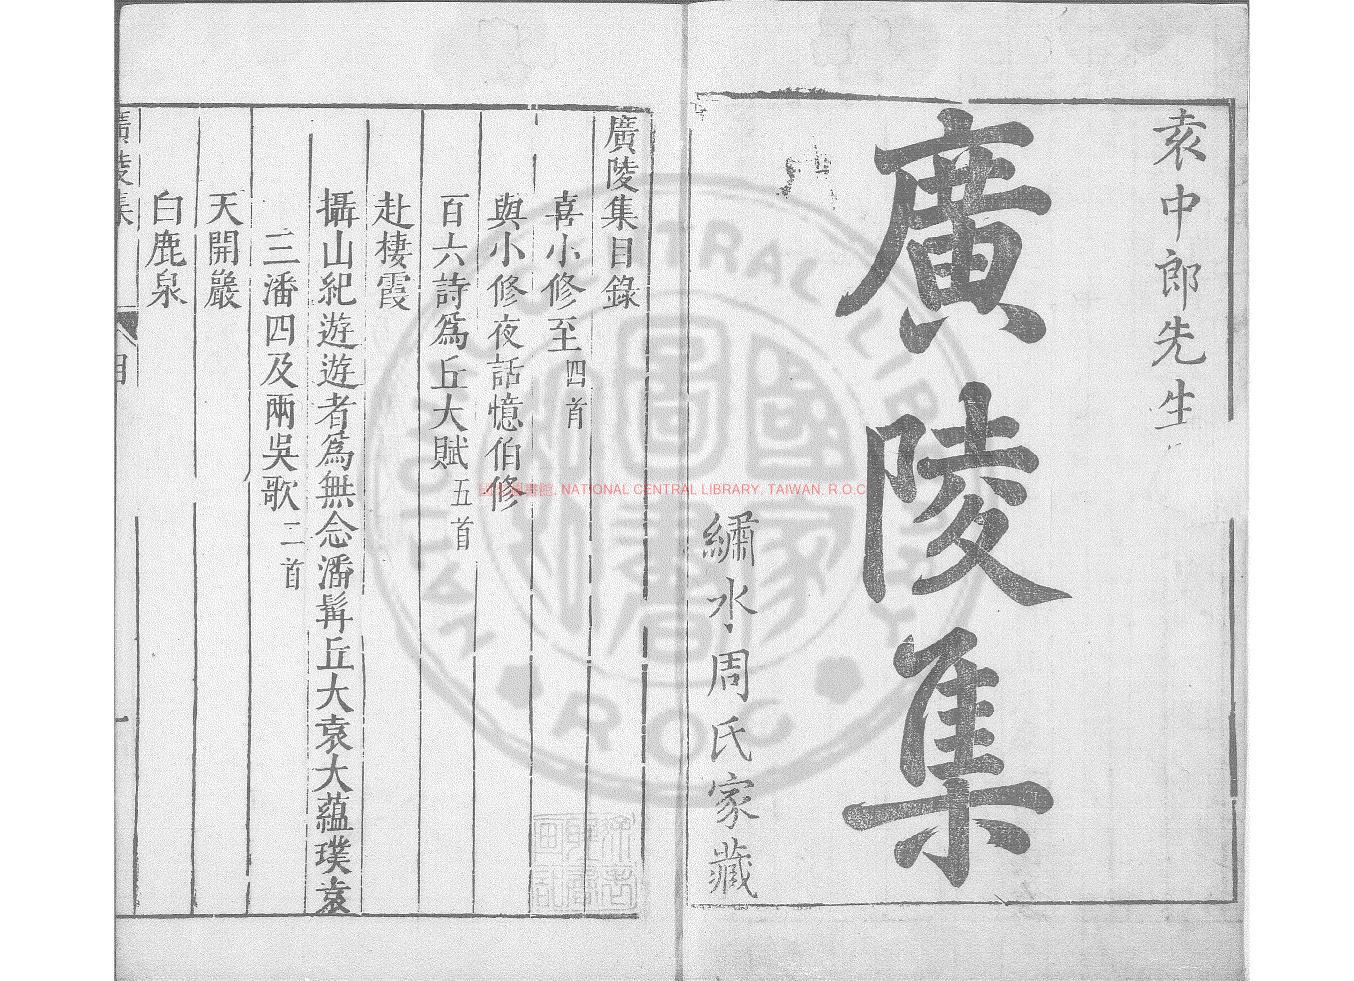 袁中郎先生
廣陵集
繡水周氏家藏
廣陵集目錄
喜小修至四首
與小修夜話憶伯修
百六詩爲丘大賦五首
赴棲霞
攝山紀遊遊者爲無念潘髯丘大袁大蘊璞袁
三潘四及兩吳歌二首
天開巖
白鹿泉
廣陵集
目
一
NATIONAL CENTRAL LIBRARY
R.O.C
國家圖書館
國家圖書館, NATIONAL CENTRAL LIBRARY, TAIWAN, R.O.C